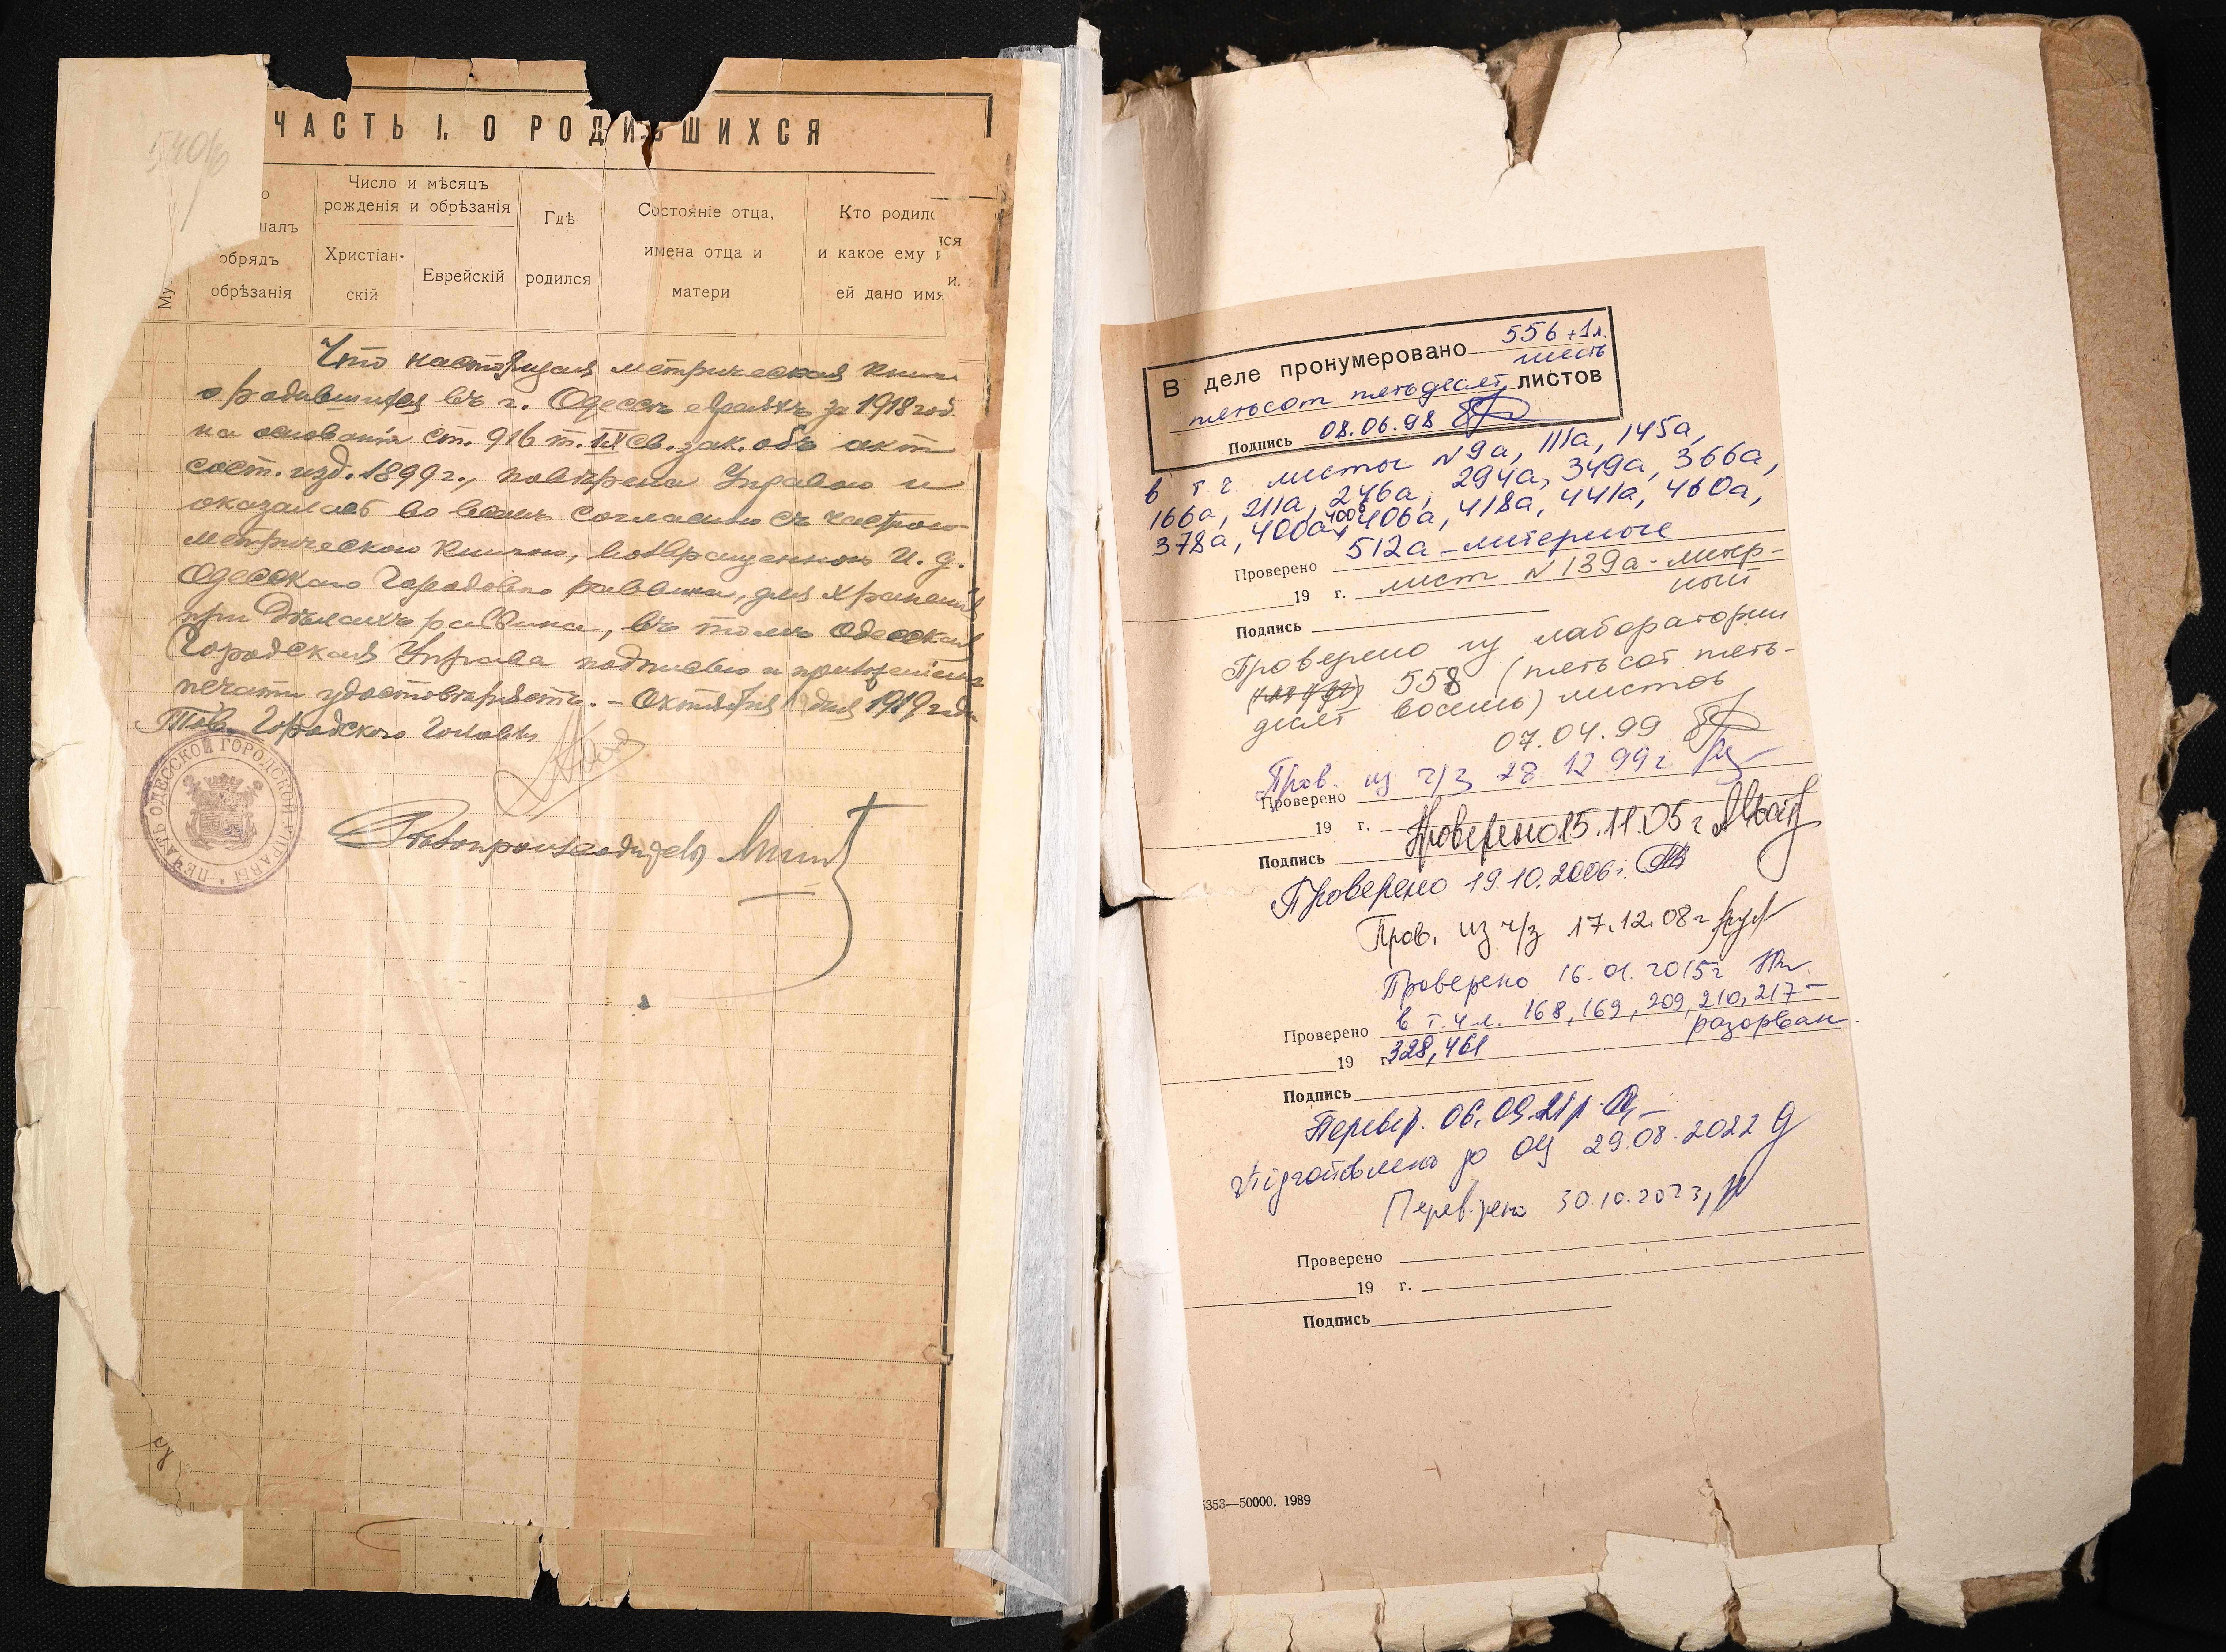 ЧАСТЬ I. О РОДИВШИХСЯ
обрядъ
обрѣзанія
Число и мѣсяцъ
рожденія и обрѣзанія
Христіан-
скій
Еврейскій
Гдѣ
родился
Состояніе отца,
имена отца и
матери
Кто родилс
и какое ему и
ей дано имя
Что настоящая метрическая книга
о родившихся въ г. Одессѣ евреяхъ за 1918 год
на основаніи ст. 916 т. IX св. зак. объ акт
сост. изд. 1899 г., повѣрена Управою и
оказалась во всемъ согласною съ
метрическою книгою, возвращенною И. д.
Одесскаго Городового раввина, для храненія
при дѣлахъ раввина, въ томъ Одесская
Городская Управа подписью и приложеніемъ
печати удостовѣряетъ. - Октября дня 1919 года
Тов. Городского Головы
ПЕЧАТЬ ОДЕССКОЙ ГОРОДСКОЙ УПРАВЫ
Дѣлопроизводитель
В деле пронумеровано 556 + 1 л.
пятьсот пятьдесят шесть листов
Подпись 08.06.98
в т.ч. листы N 9а, 111а, 145а,
166а, 211а, 246а, 294а, 349а, 366а,
378а, 400а, 400б, 406а, 418а, 441а, 460а,
512а - литерные
Проверено
19 г. лист N 139а - литер-
ный
Подпись
Проверено из лаборатории
558 (пятьсот пять-
десят восемь) листов
07.04.99
Пров. из ч/з 28.12.99 г
Проверено
19 г.
Проверено 15.11.05 г
Подпись
Проверено 19.10.2006 г.
Пров. из ч/з 17.12.08 г
Проверено 16.01.2015 г
Проверено в т.ч л. 168, 169, 209, 210, 217 -
разорван
19 г. 328, 461
Подпись
Перевір. 06.09.21 р.
Підготовлено до ОЦ 29.08.2022
Перевірено 30.10.2023
Проверено
19 г.
Подпись
353—50000. 1989